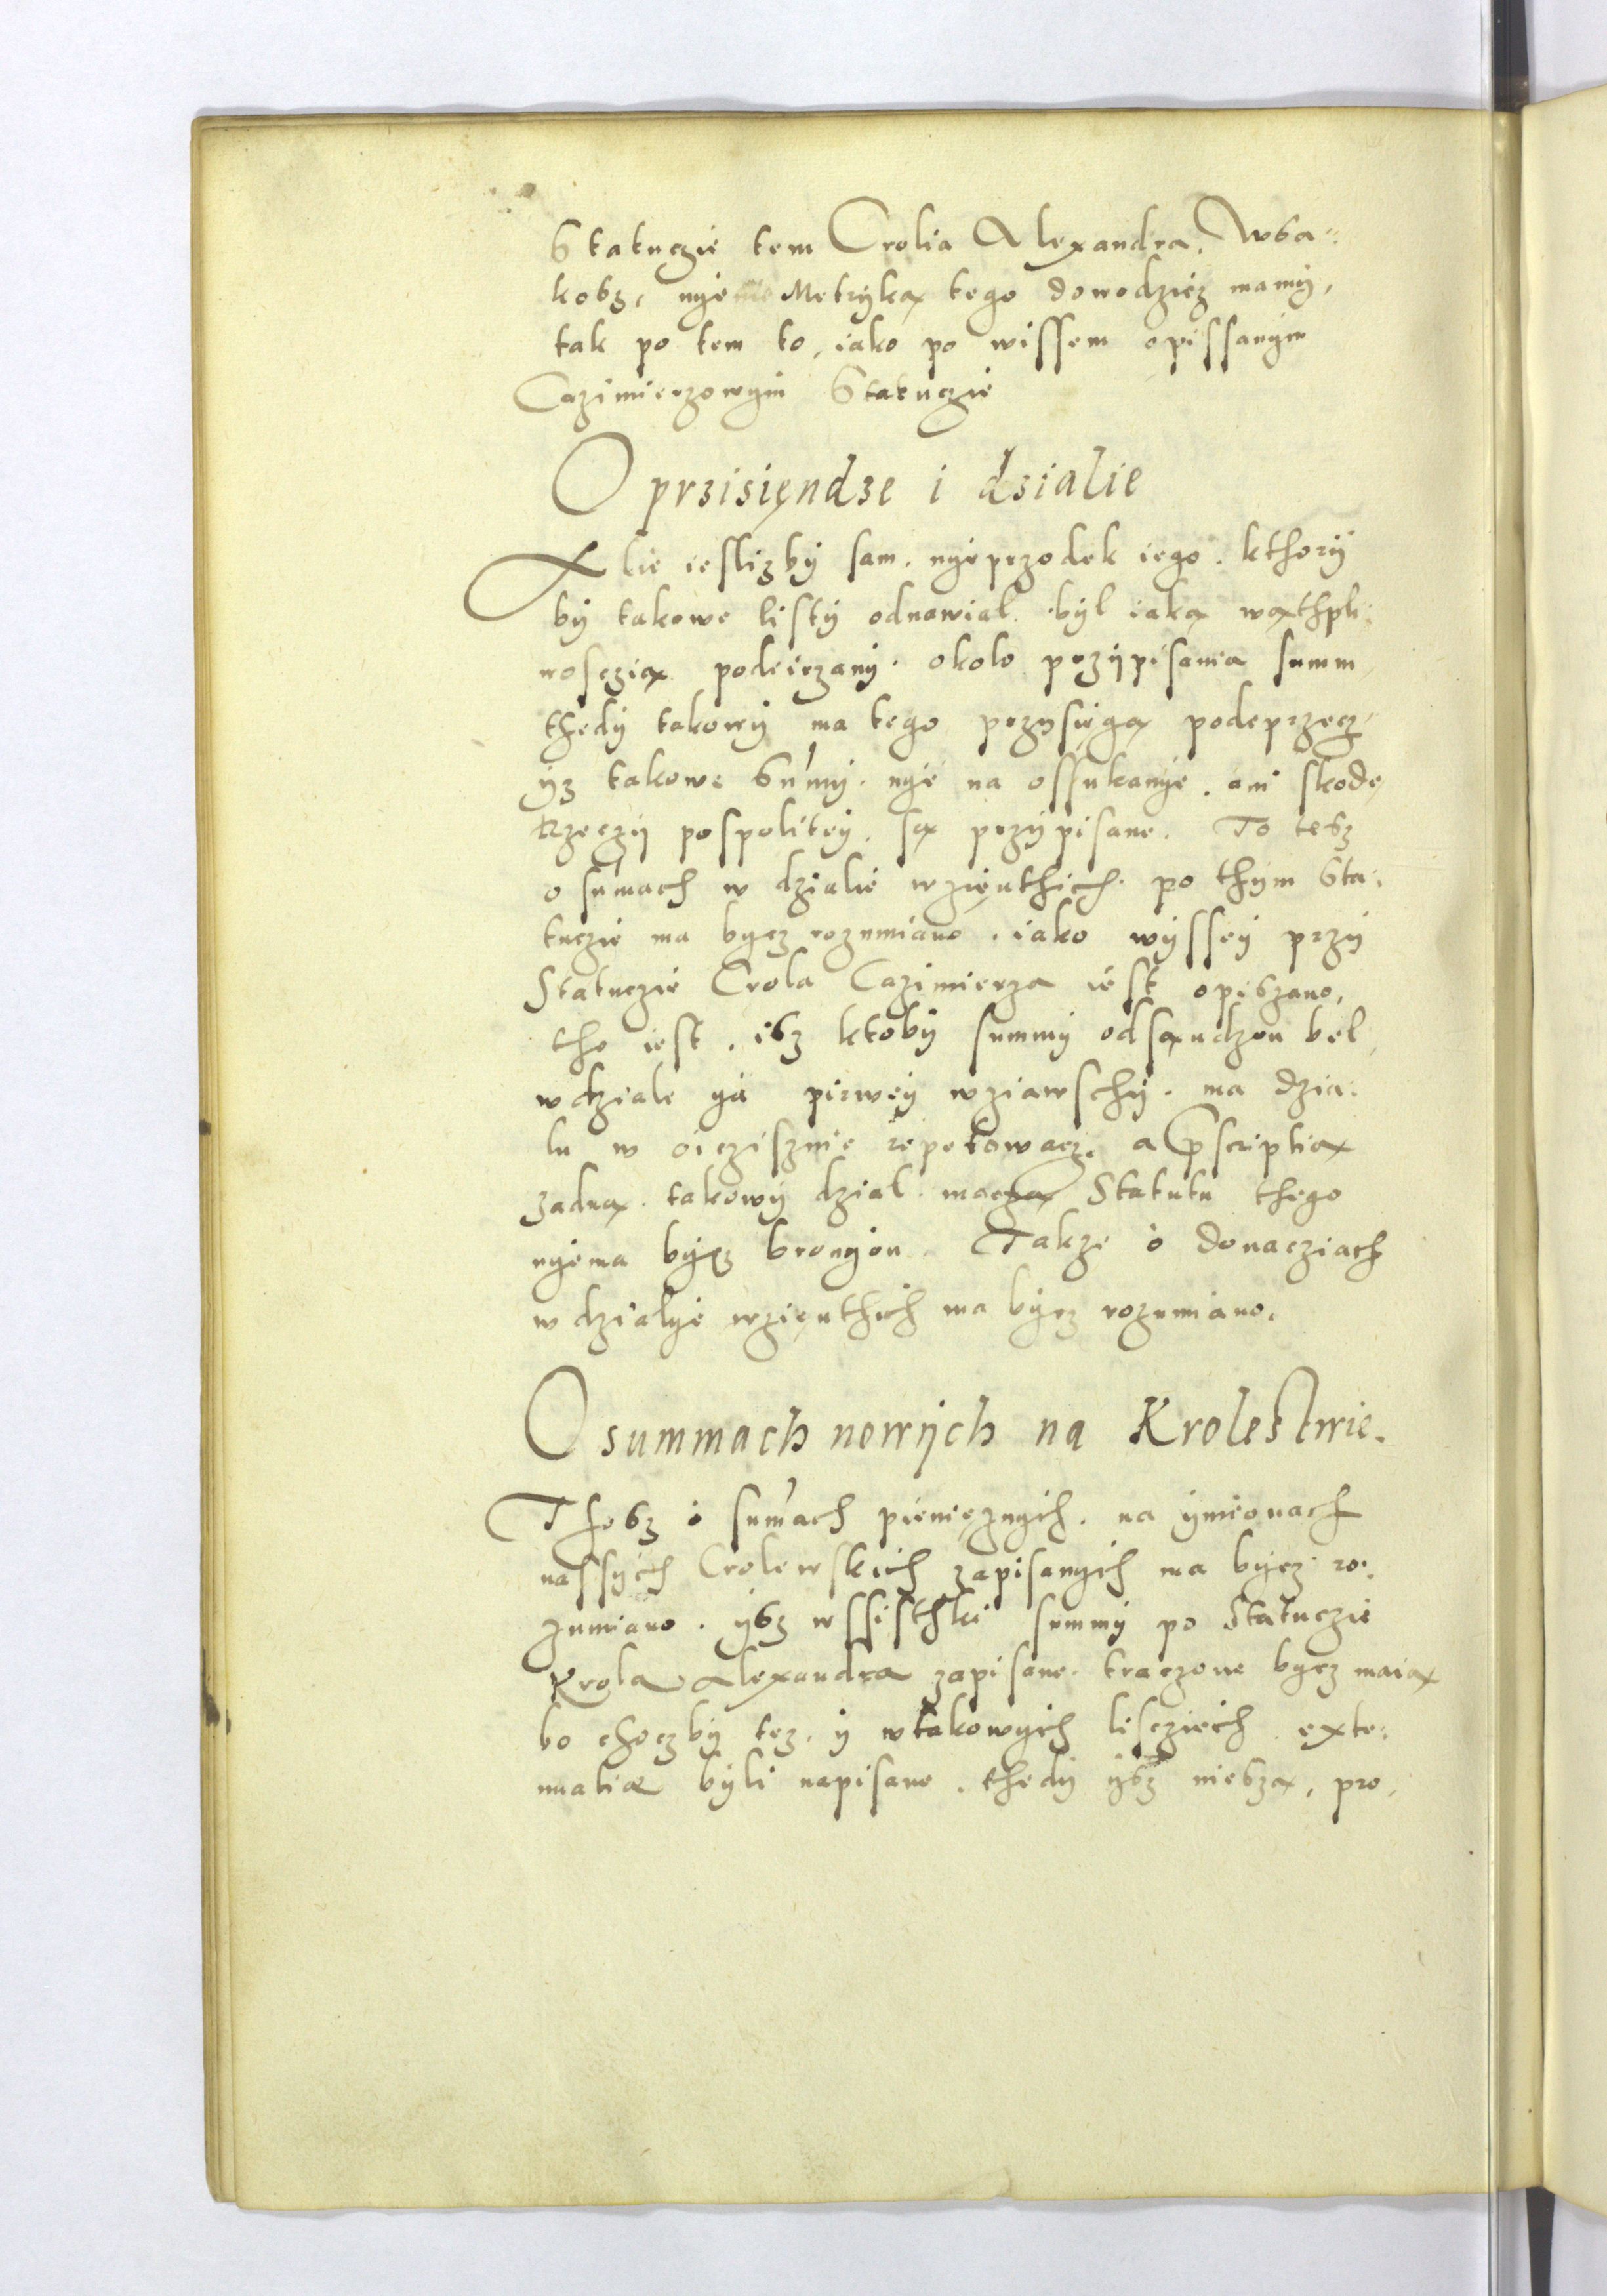 Statuczie tem Crolia Alexandra. Wsa-
kosz, nyie Metryką tego dowodzicz mamy,
tak po tem to, iako po wissem opissanym
Cazimierzowym Statuczie
O przisiendze i dzialie
Alie ieslizby sam. nyeprzodek iego. kthory
by takowe listy odnawial. byl iaką wąthpli-
wosczią podeirzany. okolo przypisania summ
thedy takowy ma tego przysięgą podeprzecz
yz takowe Sumy. nye na ossukanye. ani skode
Rzeczy pospolitey. są przypisane. To tesz
o sumach w dzialie wzięnthich. po thym Sta-
tuczie ma bycz rozumiano. iako wyssey przy
Statuczie Crola Cazimierza iest opiszano,
tho iest. isz ktoby summy odsąndzon bel
w dziale ya pirwey wziawschy. ma dzia-
lu w oiczisznie repetowacz. a pscriptią
zadną. takowy dzial. Statutu thego
nyema bycz bronyon. Takze o donacziach
w dzialye wzięnthich ma bycz rozumiano.
O summach nowych na Krolestwie.
Thesz o sumach pienięznych. na ymionach
nassych Crolewskich zapisanych ma bycz ro-
zumiano. ysz wssisthki summy po Statuczie
Krola Alexandra zapisane. traczone bycz maią
bo choczby tez. y w takowych liscziech. exte-
nuatiæ byli napisane. thedy ysz nieszą, pro-